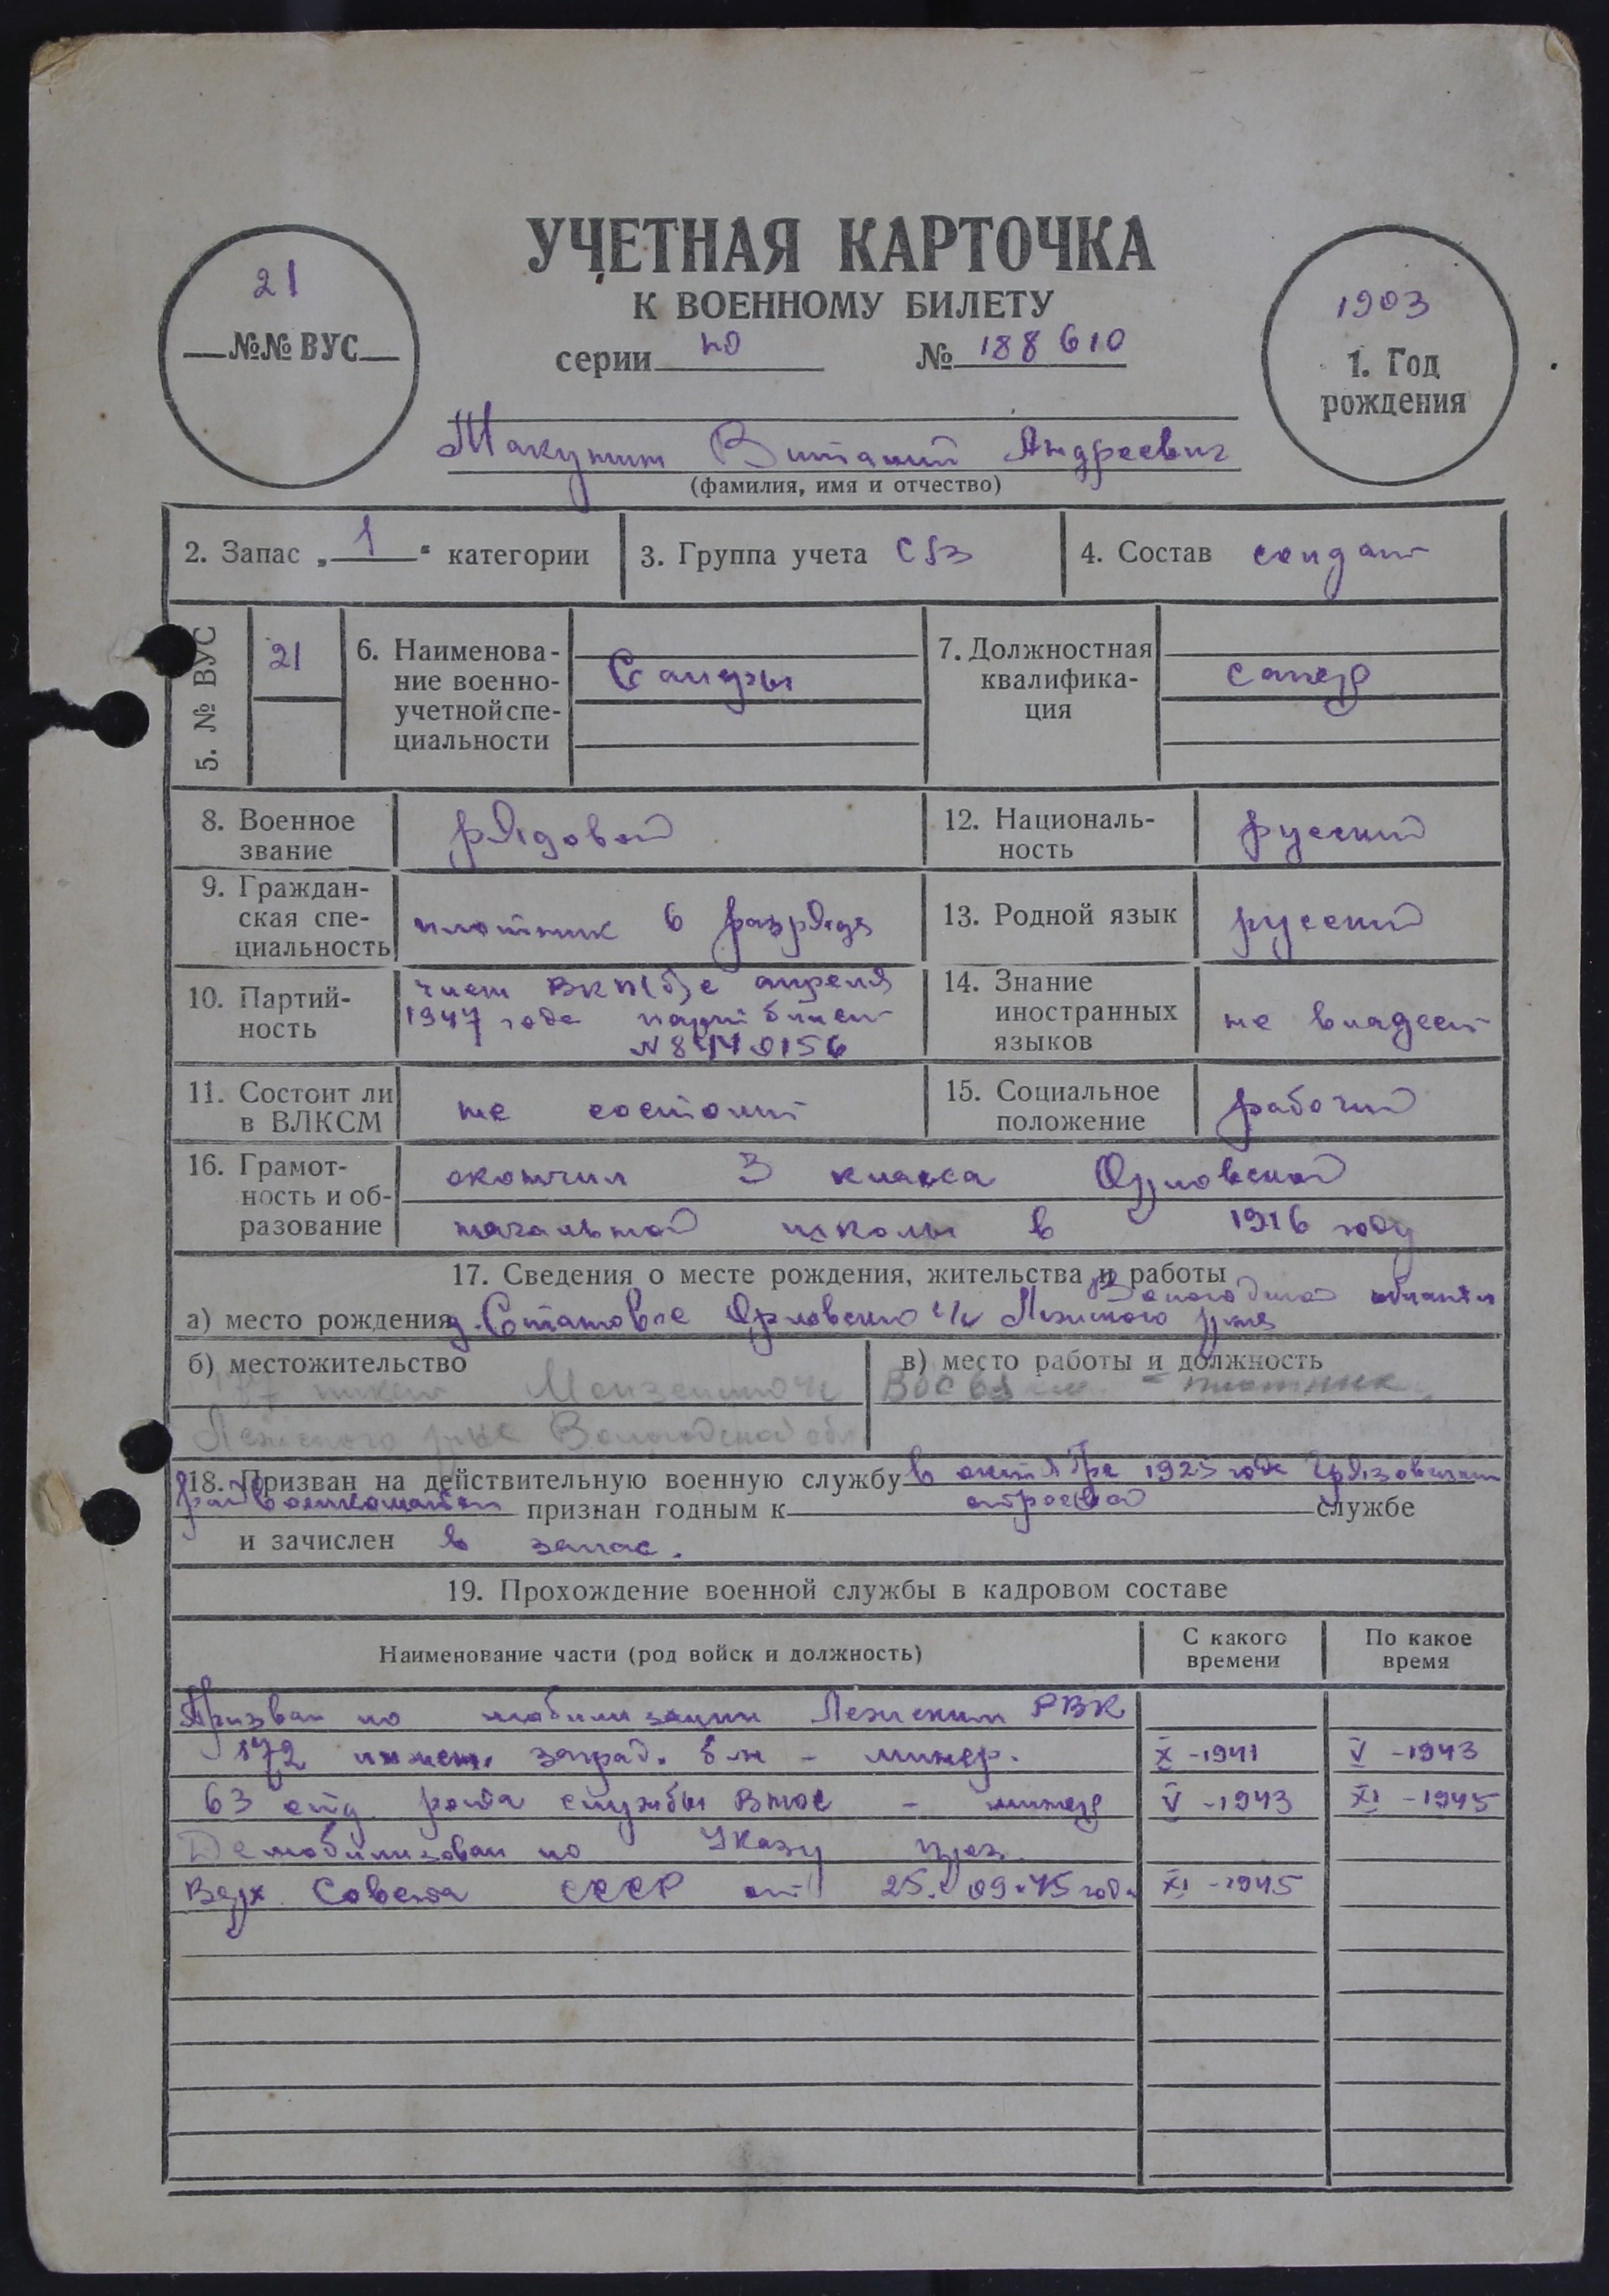 УЧЕТНАЯ КАРТОЧКА
К ВОЕННОМУ БИЛЕТУ
серии № 188610
21
№№ ВУС
1903
1. Год
рождения
Виталий Андреевич
(фамилия, имя и отчество)
2. Запас „ 1 “ категории
3. Группа учета
4. Состав солдат
5. № ВУС
21
6. Наименова-
ние военно-
учетной спе-
циальности
Саперы
7. Должностная
квалифика-
ция
сапер
8. Военное
звание
рядовой
12. Националь-
ность
русский
9. Граждан-
ская спе-
циальность
плотник 6 разряда
13. Родной язык
русский
10. Партий-
ность
член ВКП(б) с апреля
1947 года парт билет
14. Знание
иностранных
языков
не владеет
11. Состоит ли
в ВЛКСМ
не состоит
15. Социальное
положение
рабочий
16. Грамот-
ность и об-
разование
окончил 3 класса Орловской
начальной школы в 1916 году
17. Сведения о месте рождения, жительства и работы
Вологодской области
а) место рождения д. Орловского с/с Лежского р-на
б) местожительство
в) место работы и должность
плотник
Лежского Вологодской обл
18. Призван на действительную военную службу в октябре года Грязовецким
райвоенкоматом признан годным к строевой службе
и зачислен в запас.
19. Прохождение военной службы в кадровом составе
Наименование части (род войск и должность)
С какого
времени
По какое
время
Призван по мобилизации Лежским РВК
172 инжен. заград. б-н - минер. X - 1941 V - 1943
63 отд рота службы - минер V - 1943 XI - 1945
Демобилизован по Указу през.
Верх. Совета СССР от 25. 09. 45 года XI - 1945